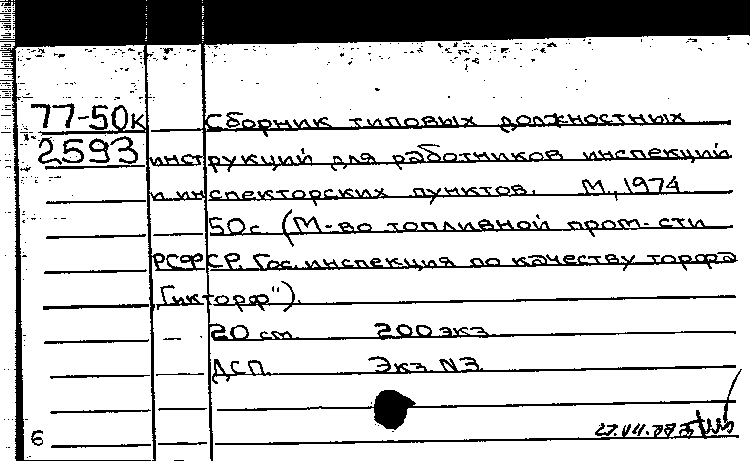 77-50к
2593
Сборник типовых должностных
инструкций для работников инспекций
и инспекторских пунктов. М., 1974
50с. (М-во топливной пром-сти
РСФСР. Гос. инспекция по качеству торфа
"Гикторф").
20 см. 200 экз.
ДСП. Экз. N3
6